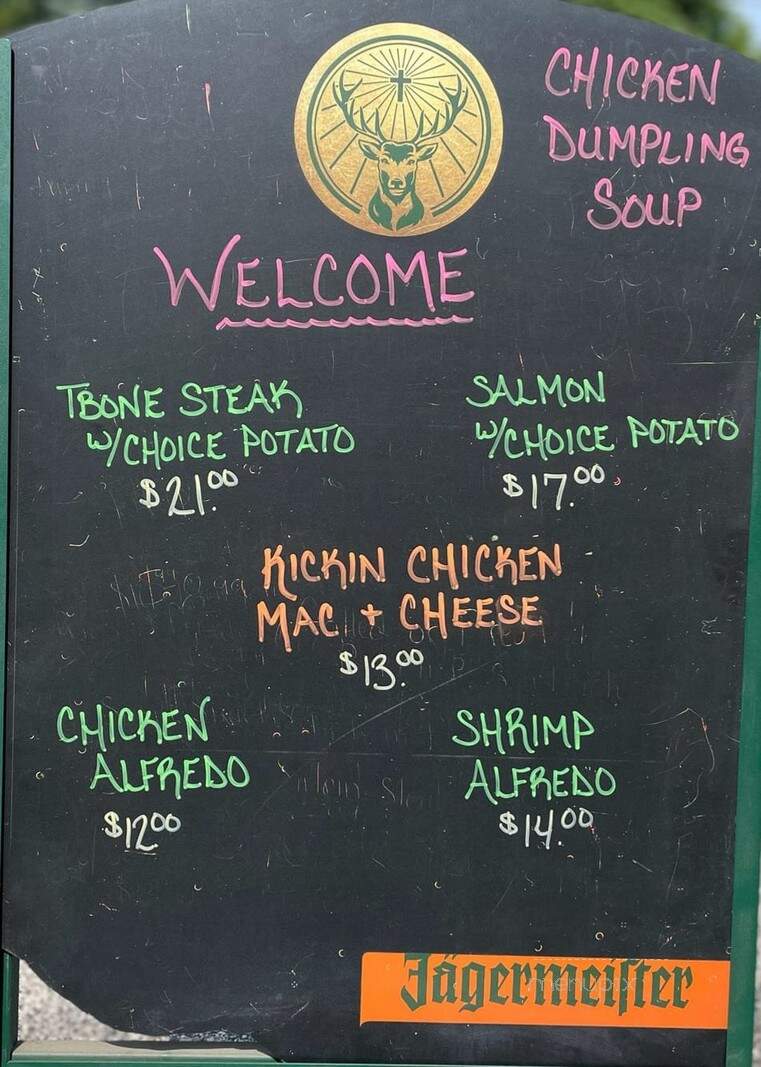 CHICKEN
DUMPLING
SOUP
WELCOME
TBONE STEAK
W/CHOICE POTATO
$21.00
SALMON
W/CHOICE POTATO
$17.00
KICKIN CHICKEN
MAC + CHEESE
$13.00
CHICKEN
ALFREDO
$12.00
SHRIMP
ALFREDO
$14.00
Jägermeiſter
menupix